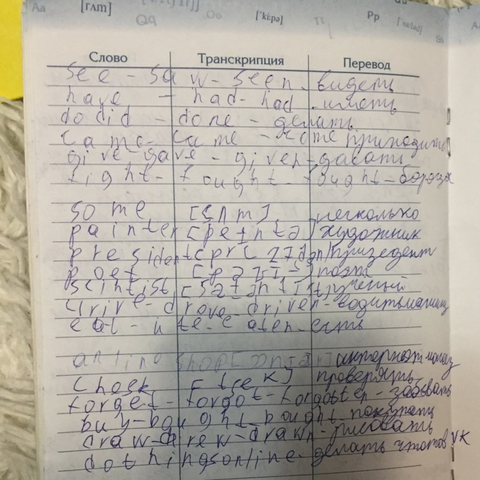 Aa [гʌm] Qq Oo ['kʌpə] Pp
Слово Транскрипция Перевод
see - saw - seen. видеть
have - had - had. иметь
do did - done - делать
came - came - come приходить
give - gave - given - давать
fight - fought - fought - борода
some [sʌm] несколько
painter [peintə] художник
president президент
poet поэт
scintist учёный
drive - drove - driven - водить машину
eat - ate - eaten - есть
online shop интернет магаз
Check [tʃek] проверять
forget - forgot - forgoten - забывать
buy - bought - bought - покупать
draw - drew - drawn - рисовать
do things online - делать что то в VK